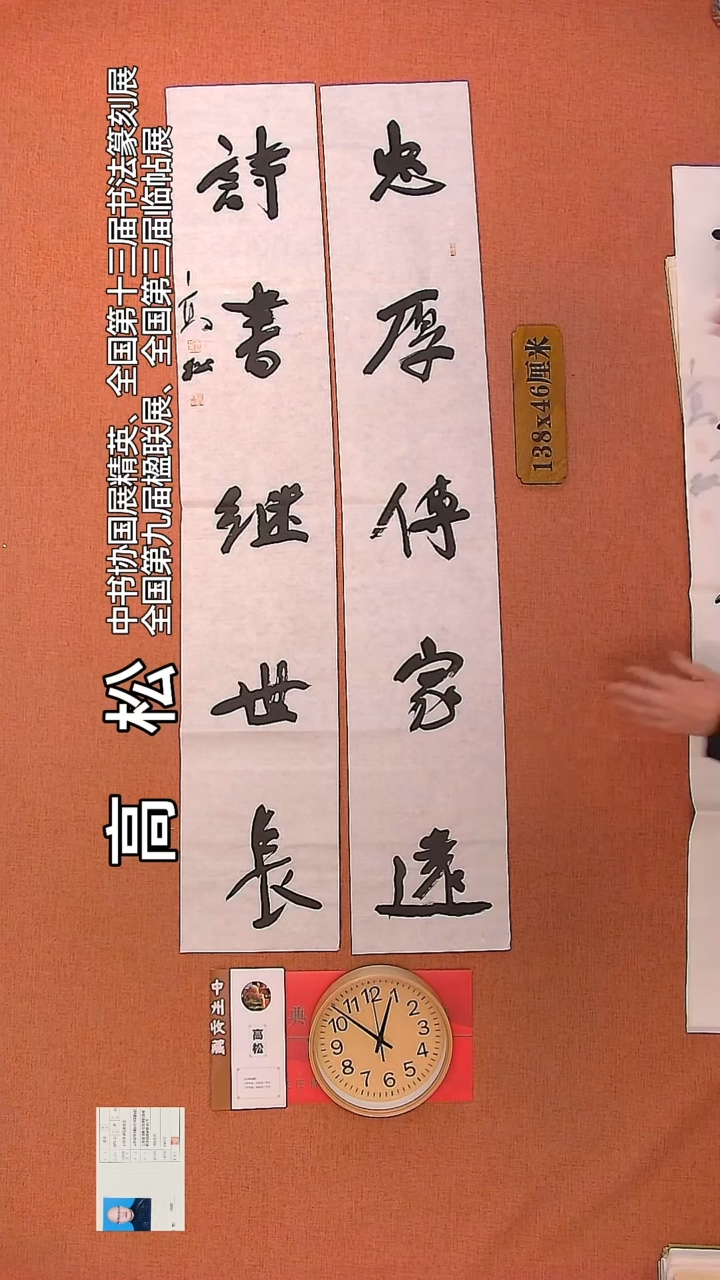 忠厚傳家遠
詩書继世長
高松
中书协国展精英、全国第十三届书法篆刻展
全国第九届楹联展、全国第三届临帖展
高松
138x46厘米
高松
12
1
2
3
4
5
6
7
8
9
10
11